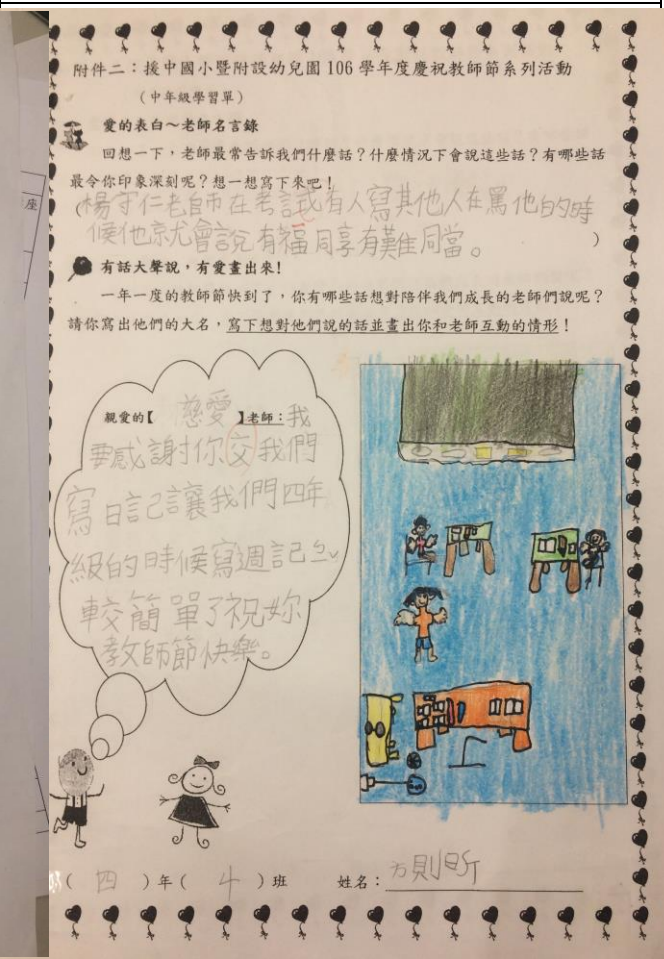 附件二：援中國小暨附設幼兒園106學年度慶祝教師節系列活動
（中年級學習單）
愛的表白～老師名言錄
回想一下，老師最常告訴我們什麼話？什麼情況下會說這些話？有哪些話
最令你印象深刻呢？想一想寫下來吧！
（楊守仁老師在考試或有人寫其他人在罵他的時
候他就會說有福同享有難同當。）
有話大聲說，有愛畫出來！
一年一度的教師節快到了，你有哪些話想對陪伴我們成長的老師們說呢？
請你寫出他們的大名，寫下想對他們說的話並畫出你和老師互動的情形！
親愛的【慈愛】老師：我
要感謝你交我們
寫日記讓我們四年
級的時候寫週記ㄅㄧˇ
較簡單了祝妳
教師節快樂。
（四）年（4）班 姓名：方則
座